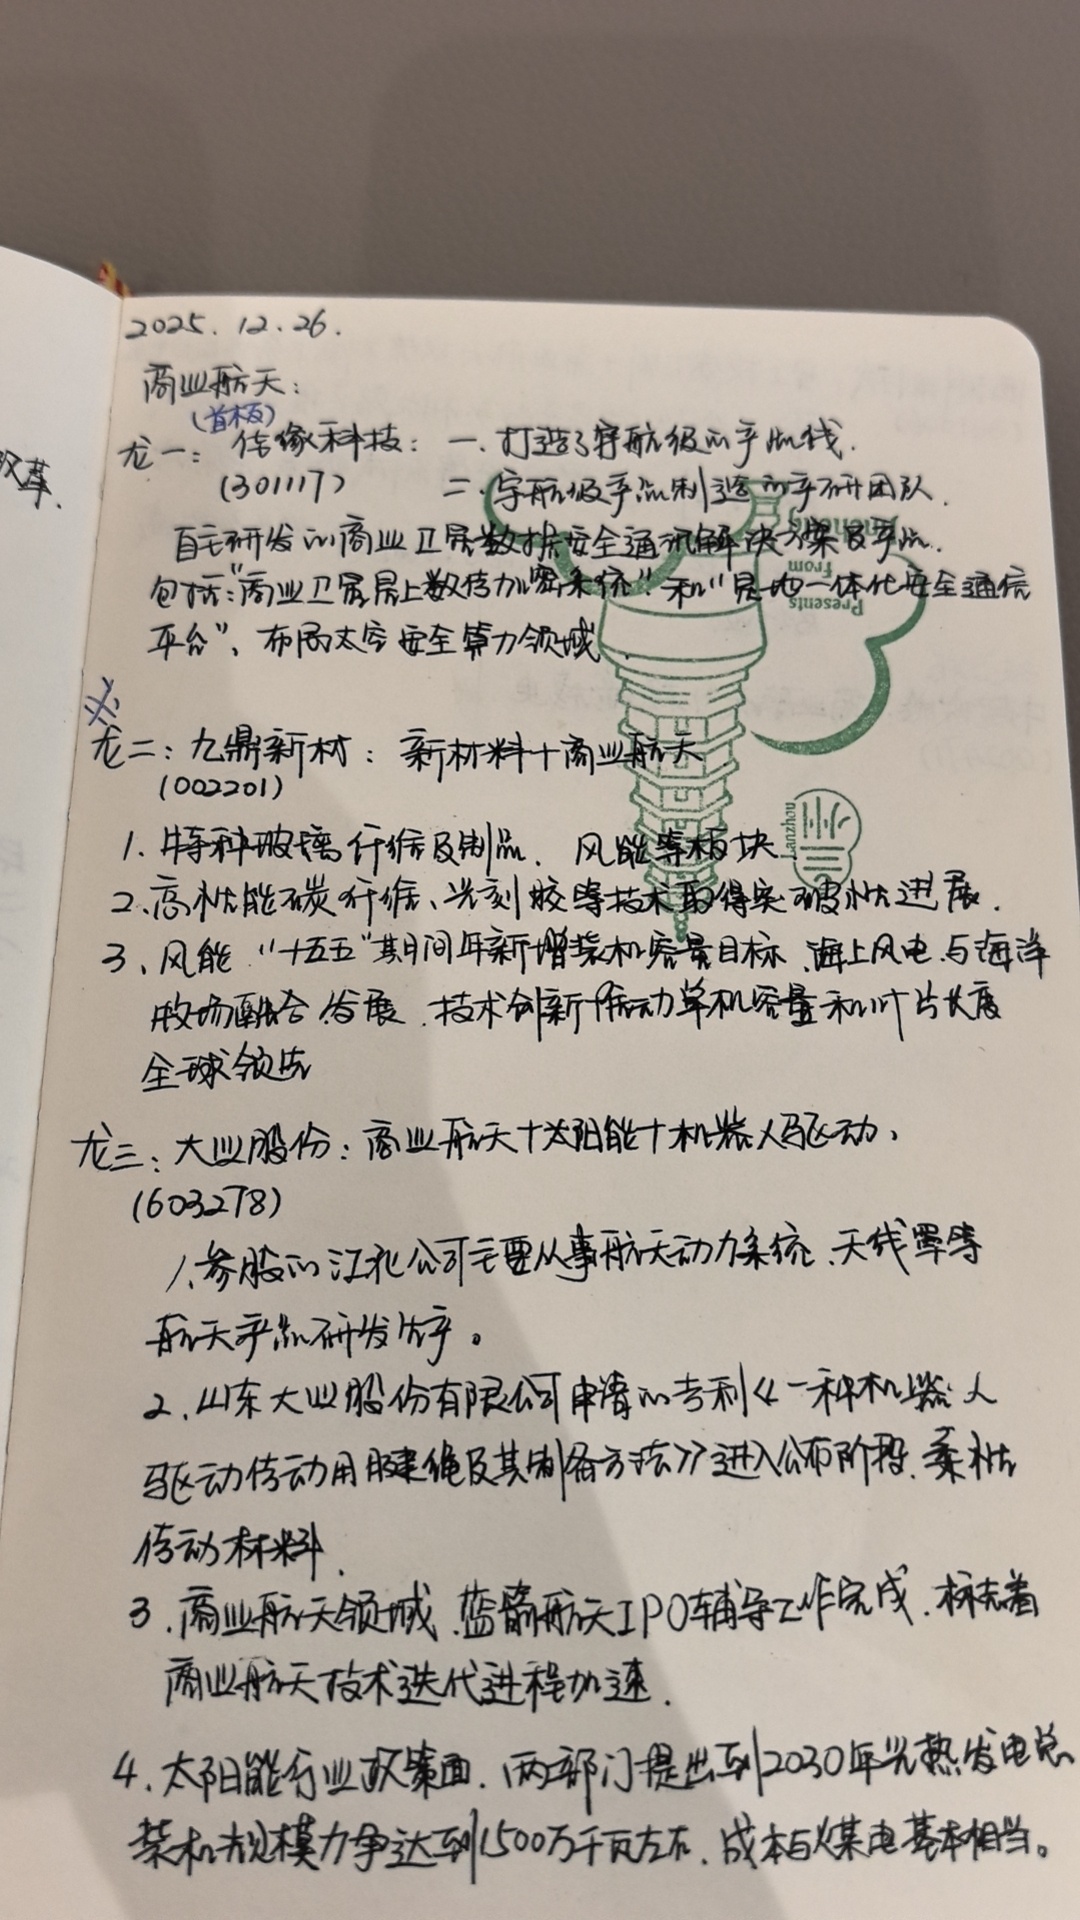 汉草.
2025.12.26.
商业航天:
(首板)
龙一: 佳缘科技: 一. 打造了宇航级的产品线.
(301117) 二. 宇航级产品制造的产研团队.
自主研发的商业卫星数据安全通讯解决方案及产品.
包括:"商业卫星星上数传加密系统".和"星地一体化安全通信
平台"、布局太空安全算力领域
龙二: 九鼎新材: 新材料+商业航天
(002201)
1. 特种玻璃纤维及制品、风能等板块.
2.高性能碳纤维、光刻胶等技术取得突破性进展.
3、风能 "十五五"期间年新增装机容量目标、海上风电与海洋
牧场融合发展、技术创新推动单机容量和叶片长度
全球领先
龙三: 大业股份: 商业航天+太阳能+机器人驱动、
(603278)
1.参股的江北公司主要从事航天动力系统、天线罩等
航天产品研发生产。
2.山东大业股份有限公司申请的专利《一种机器人
驱动传动用腱绳及其制备方法》进入公布阶段、柔性
传动材料.
3.商业航天领域.蓝箭航天IPO辅导工作完成.标志着
商业航天技术迭代进程加速.
4.太阳能行业政策面.两部门提出到2030年光热发电总
装机规模力争达到1500万千瓦左右.成本与煤电基本相当。
Presents
from
nouzue